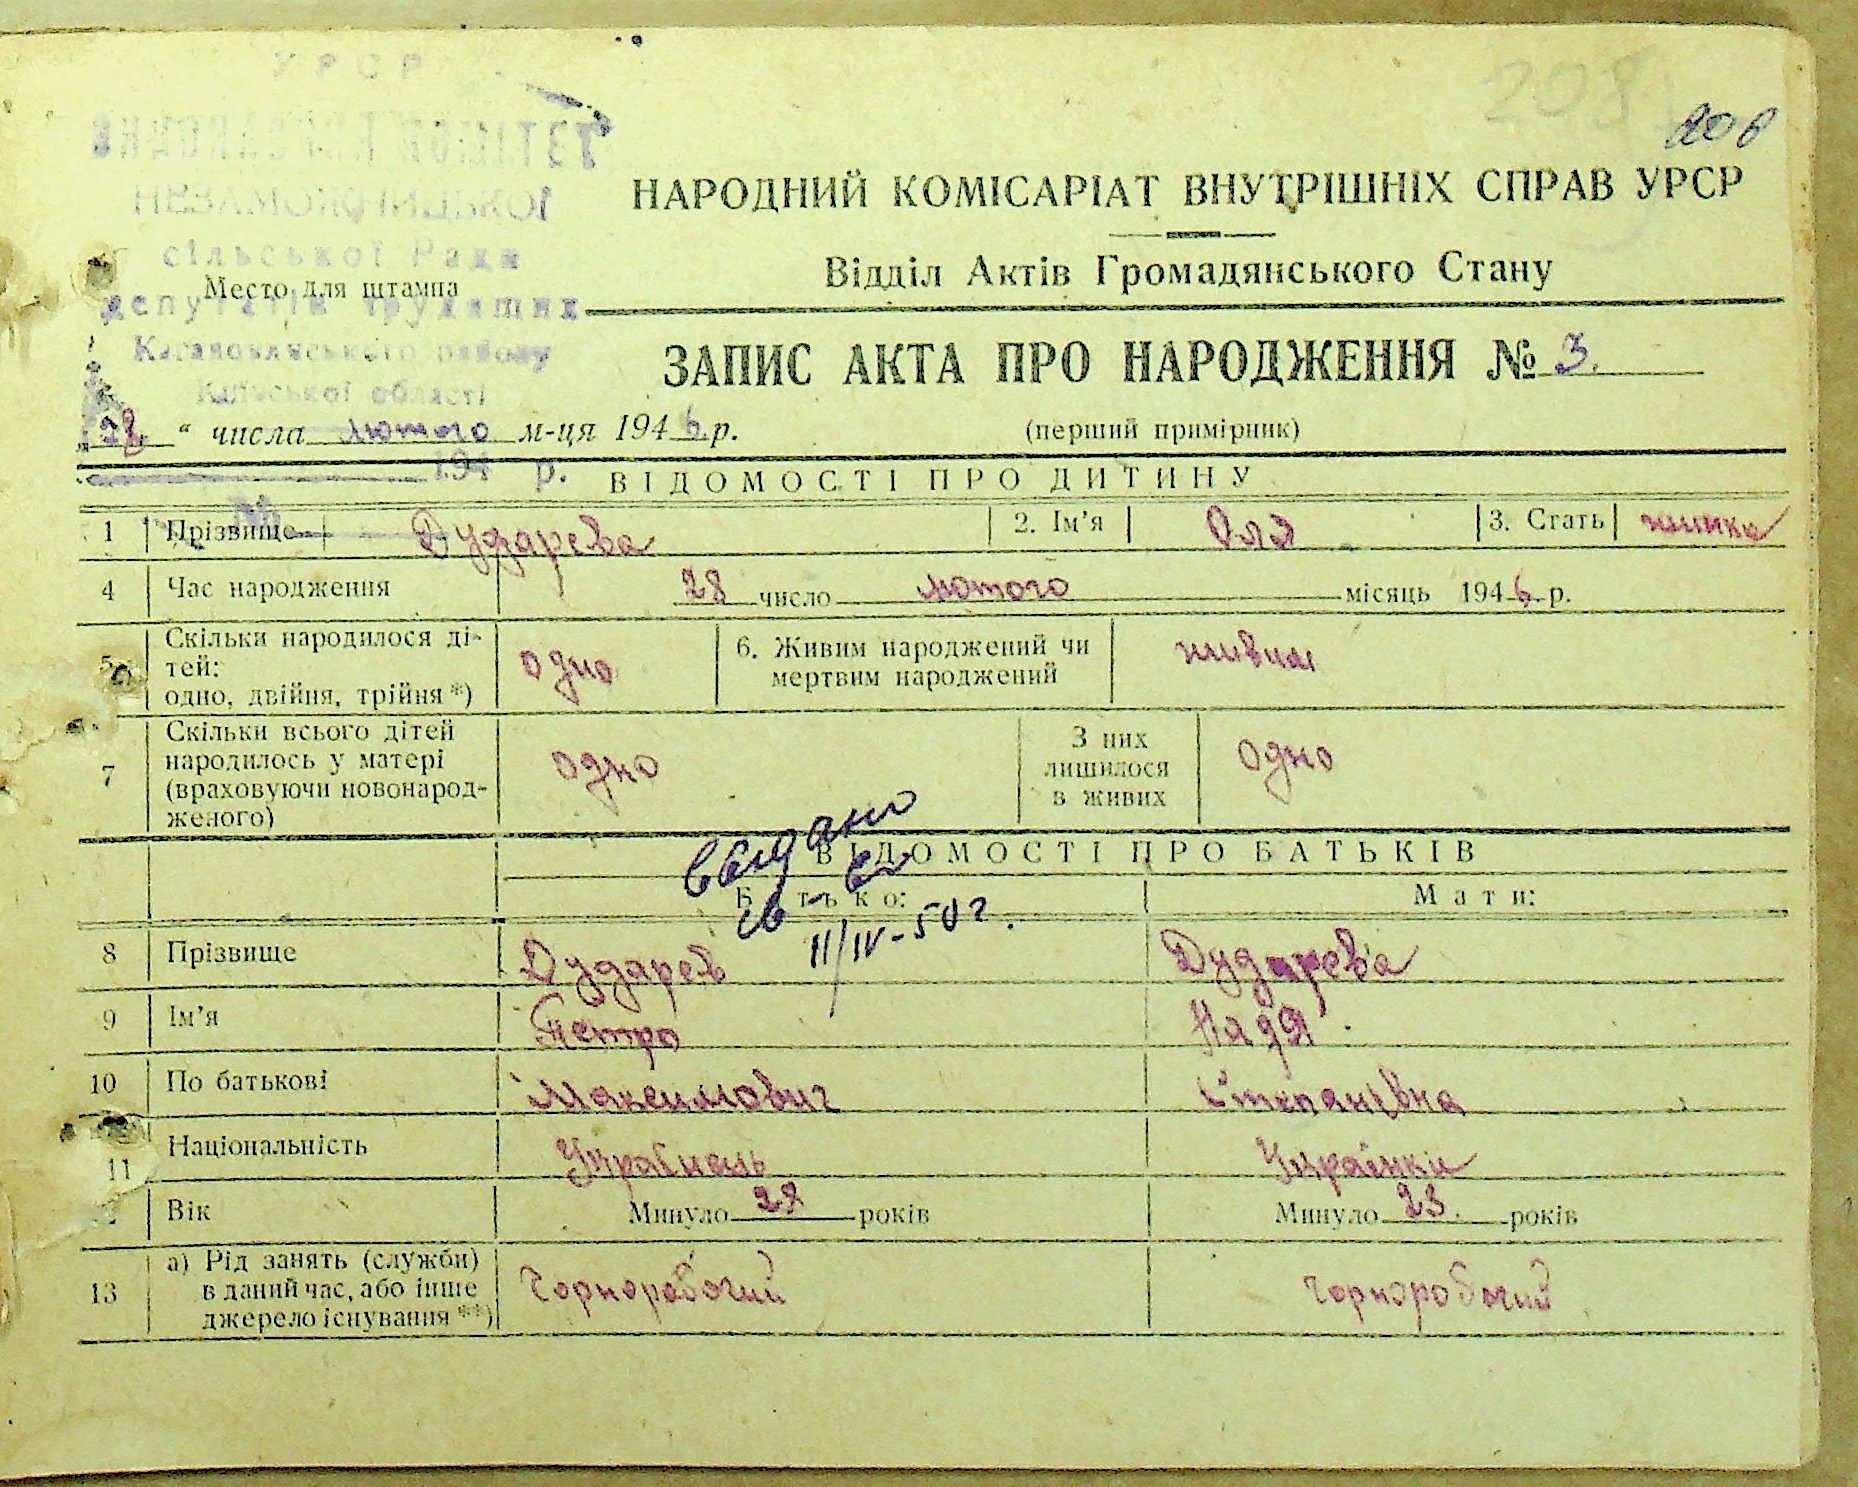 УРСР
НЕЗАМОЖНИЦЬКОЇ
сільської Ради
депутатів трудящих
Кагановицького району
Київської області
Место для штампа
208
НАРОДНИЙ КОМІСАРІАТ ВНУТРІШНІХ СПРАВ УРСР
Відділ Актів Громадянського Стану
ЗАПИС АКТА ПРО НАРОДЖЕННЯ № 3.
28 “ числа лютого м-ця 1946 р.
(перший примірник)
194 р.
ВІДОМОСТІ ПРО ДИТИНУ
1 Прізвище Дударева 2. Ім’я Оля 3. Стать жінка
4 Час народження 28 число лютого місяць 1946 р.
5 Скільки народилося ді-
тей:
одно, двійня, трійня *) одно
6. Живим народжений чи
мертвим народжений живим
7 Скільки всього дітей
народилось у матері
(враховуючи новонарод-
женого) одно
З них
лишилося
в живих одно
ВІДОМОСТІ ПРО БАТЬКІВ
Батько: Мати:
II/IV-50 г.
8 Прізвище Дударев Дударева
9 Ім’я Петро Надя
10 По батькові Максимович Степанівна
11 Національність Українець Українка
Вік Минуло років Минуло 23. років
13 а) Рід занять (служби)
в даний час, або інше
джерело існування **) Чорноробочий Чорноробочий